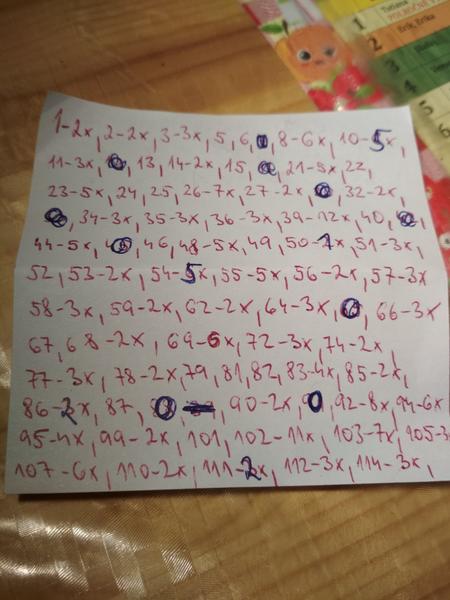 1
Tatiana
2
Erik, Erika
3
4
5
6
1-2x, 2-2x, 3-3x, 5, 6, 8-6x, 10-5x,
11-3x, 13, 14-2x, 15, 21-5x, 22,
23-5x, 24, 25, 26-7x, 27-2x, 32-2x,
34-3x, 35-3x, 36-3x, 39-12x, 40,
44-5x, 46, 48-5x, 49, 50-1x, 51-3x,
52, 53-2x, 54-5x, 55-5x, 56-2x, 57-3x
58-3x, 59-2x, 62-2x, 64-3x, 66-3x
67, 68-2x, 69-6x, 72-3x, 74-2x,
77-3x, 78-2x, 79, 81, 82, 83-4x, 85-2x,
86-2x, 87, 90-2x, 92-8x, 94-6x
95-4x, 99-2x, 101, 102-11x, 103-7x, 105-3
107-6x, 110-2x, 111-2x, 112-3x, 114-3x,